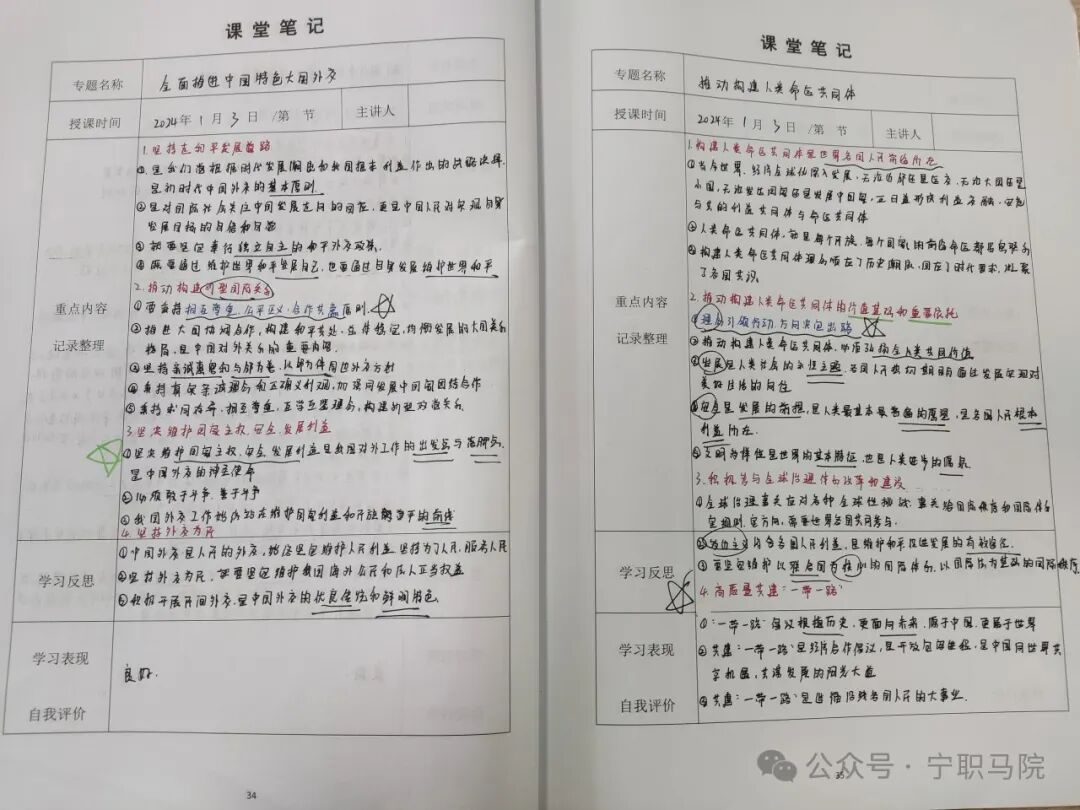 课堂笔记
专题名称 全面推进中国特色大国外交
授课时间 2024年1月3日/第 节 主讲人
重点内容
记录整理
1.坚持走和平发展道路
①是我们党根据时代发展潮流和我国根本利益作出的战略决择,
是新时代中国外交的基本原则
②是对国际社会关注中国发展走向的回应,更是中国人民对实现自身
发展目标的自信和自觉
③就要坚定奉行独立自主的和平外交政策.
④既要通过维护世界和平发展自己,也要通过自身发展维护世界和平
2.推动构建新型国际关系
①要秉持相互尊重、公平正义、合作共赢原则
②推进大国协调合作,构建和平共处、总体稳定,均衡发展的大国关系
格局,是中国对外关系的重要内容.
③坚持亲诚惠容和与邻为善、以邻为伴周边外交方针
④秉持真实亲诚理念和正确义利观,加强同发展中国家团结合作
⑤秉持求同存异、相互尊重,互学互鉴理念,构建新型政党关系
3.坚决维护国家主权、安全、发展利益
①坚决维护国家主权、安全、发展利益是我国对外工作的出发点与落脚点,
是中国外交的神圣使命
②必须敢于斗争、善于斗争
③我国外交工作始终站在维护国家利益和
的前沿
4.坚持外交为民
学习反思
①中国外交是人民的外交,始终坚定维护人民利益 坚持为了人民、服务人民
②坚持外交为民,就要坚定维护我国海外公民和法人正当权益
③积极开展民间外交,是中国外交的优良传统和鲜明特色.
学习表现
自我评价
良好.
34
课堂笔记
专题名称 推动构建人类命运共同体
授课时间 2024年1月3日/第 节 主讲人
重点内容
记录整理
1.构建人类命运共同体是世界各国人民前途所在
①当今世界,经济全球化深入发展,无论近邻还是远交,无论大国还是
小国,无论发达国家还是发展中国家,正日益形成利益交融、安危
与共的利益共同体与命运共同体
②人类命运共同体,就是每个民族、每个国家的前途命运都紧紧联系
③构建人类命运共同体理念顺应了历史潮流,回应了时代要求,凝聚
了各国共识.
2.推动构建人类命运共同体的价值基础和重要依托
①理念引领行动,方向决定出路
②推动构建人类命运共同体,必须弘扬全人类共同价值
③发展是人类社会的永恒主题,各国人民热切期盼通过发展实现对
美好生活的向往
④安定是发展的前提,是人类最基本最普遍的愿望,是各国人民根本
利益所在.
⑤文明多样性是世界的基本特征,也是人类进步的源泉
3.积极参与全球治理体系改革和建设
①全球治理事关应对各种全球性挑战,事关给国际秩序和国际体系
定规则、定方向,需要世界各国共同参与.
学习反思
②多边主义符合各国人民利益,是维护和平促进发展的有效路径.
③要坚定维护以联合国为核心的国际体系,以国际法为基础的国际秩序
4.高质量共建“一带一路”
学习表现
自我评价
①“一带一路”倡议根植历史,更面向未来,源于中国,更属于世界
②共建“一带一路”是经济合作倡议,是开放包容进程,是中国同世界共
享机遇,共谋发展的阳光大道
③共建“一带一路”是造福沿线各国人民的大事业.
35
公众号·宁职马院